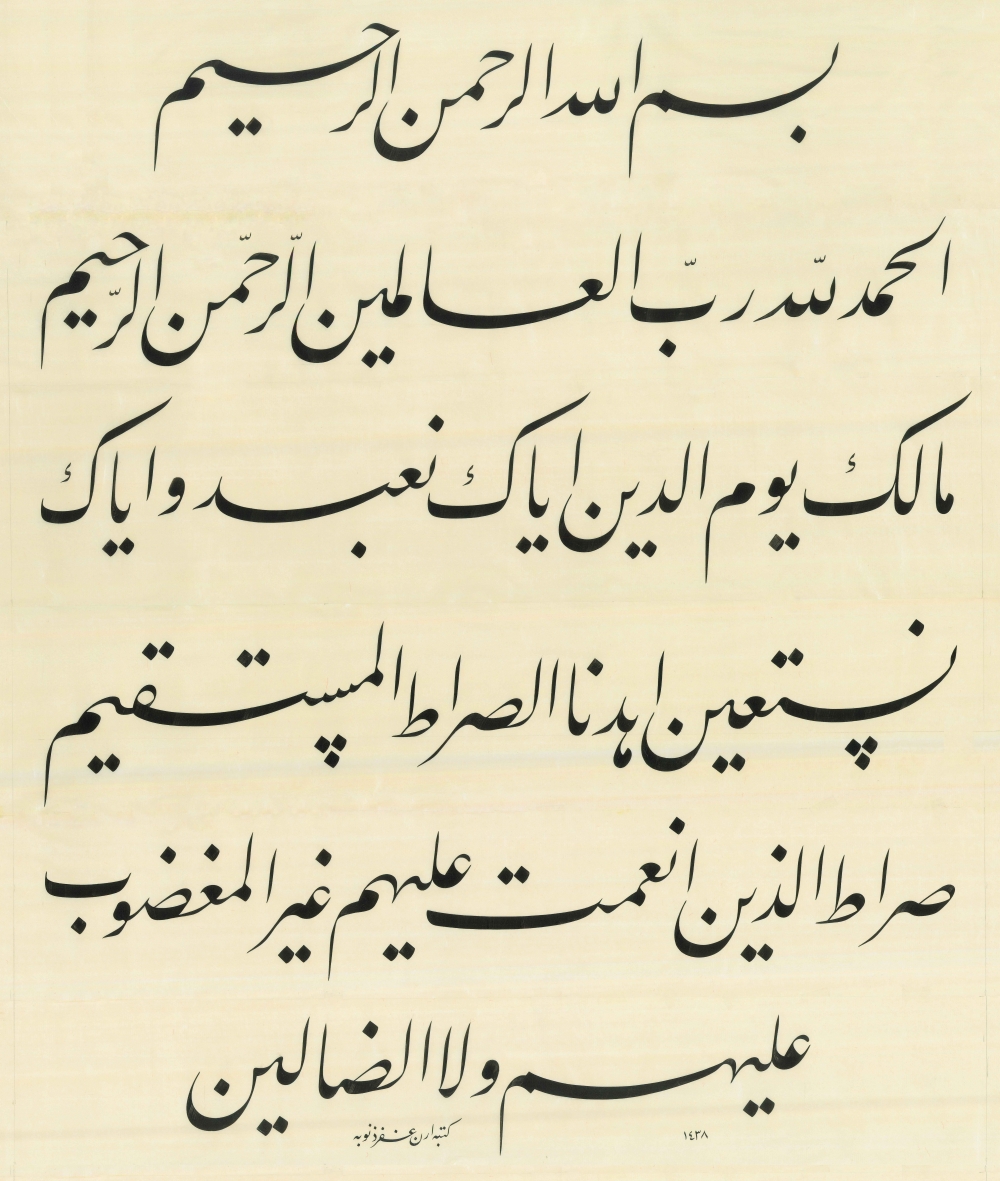 بسم الله الرحمن الرحيم
الحمد لله ربّ العالمين الرّحمن الرّحيم
مالك يوم الدين اياك نعبد و اياك
نستعين اهدنا الصراط المستقيم
صراط الذين انعمت عليهم غير المغضوب
عليهم ولا الضالين
كتبه ارن غفر ذنوبه ١٤٣٨